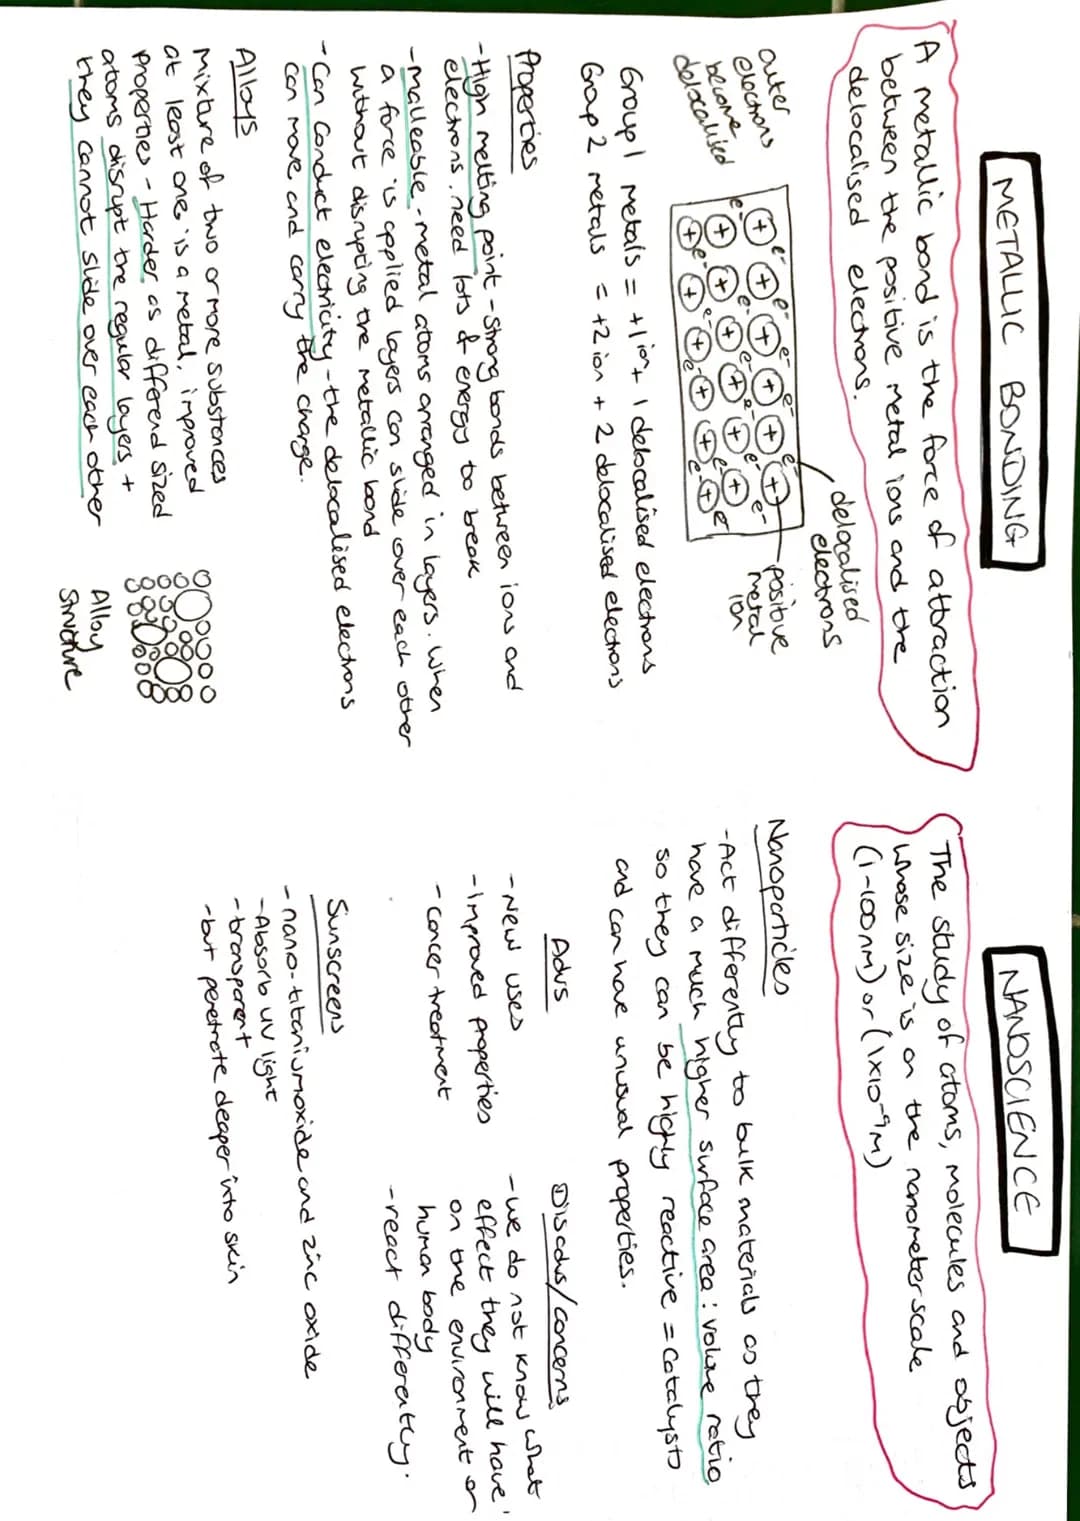 METALLIC BONDING
A metallic bond is the force of attraction
between the positive metal ions and the
delocalised electrons.
outer
electrons
become
delocalised
delocalised
electrons
positive
metal
ion
+ + + + + +
+ + + + + +
+ + + + + +
e- e- e- e- e-
e- e- e- e- e- e-
e- e- e- e- e- e
Group 1 metals = +1 ion + 1 delocalised electrons
Group 2 metals = +2 ion + 2 delocalised electrons
Properties
- High melting point - Strong bonds between ions and
electrons. need lots of energy to break
- malleable - metal atoms arranged in layers. When
a force is applied layers can slide over each other
without disrupting the metallic bond
- Can Conduct electricity - the delocalised electrons
can move and carry the charge.
Alloys
Mixture of two or more substances
at least one is a metal, improved
properties - Harder as differend sized
atoms disrupt the regular layers +
they cannot slide over each other
Alloy
Structure
NANOSCIENCE
The study of atoms, molecules and objects
whose size is on the nanometer scale
(1-100nm) or (1x10-9m)
Nanoparticles
- Act differently to bulk materials as they
have a much higher surface area : volume ratio
so they can be highly reactive = catalysts
and can have unusual properties.
Advs
- New uses
- Improved properties
- cancer treatment
Disadvs/concerns
- we do not know what
effect they will have
on the environment or
human body
- react differently.
Sunscreens
- nano-titanium oxide and zinc oxide
- Absorb uv light
- transparent
- but penetrate deeper into skin